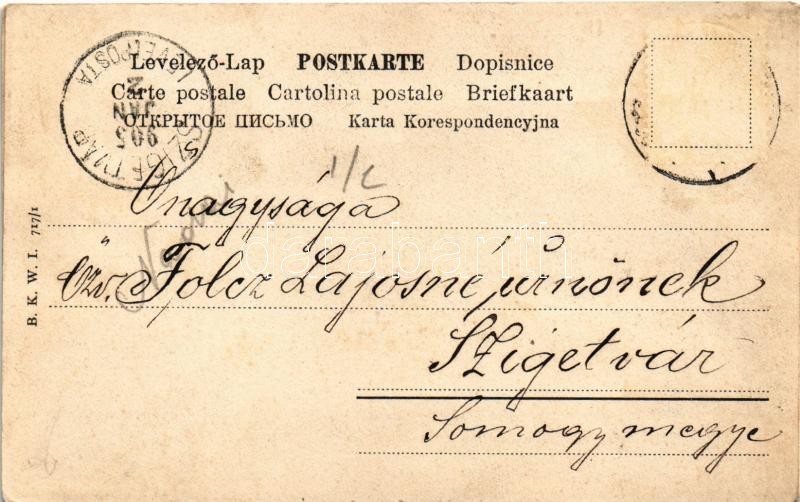 Levelező-Lap POSTKARTE Dopisnice
Carte postale Cartolina postale Briefkaart
ОТКРЫТОЕ ПИСЬМО Karta Korespondencyjna
SZIGETVÁR
905
JAN
2
LEVÉLPOSTA
1/2
Önagysága
Özv. Folcz Lajosné úrnőnek
Szigetvár
Somogy megye
B. K. W. I. 717/1
darabanth